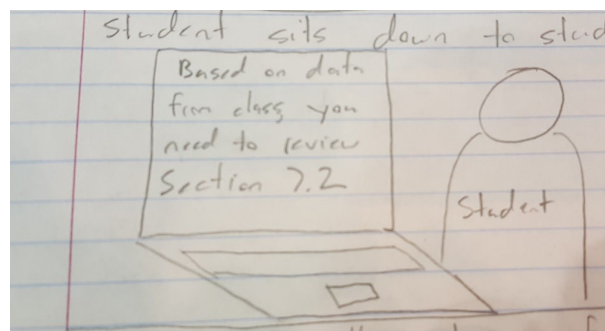 Student sits down to
Based on data
from class, you
need to review
Section 7.2
Student